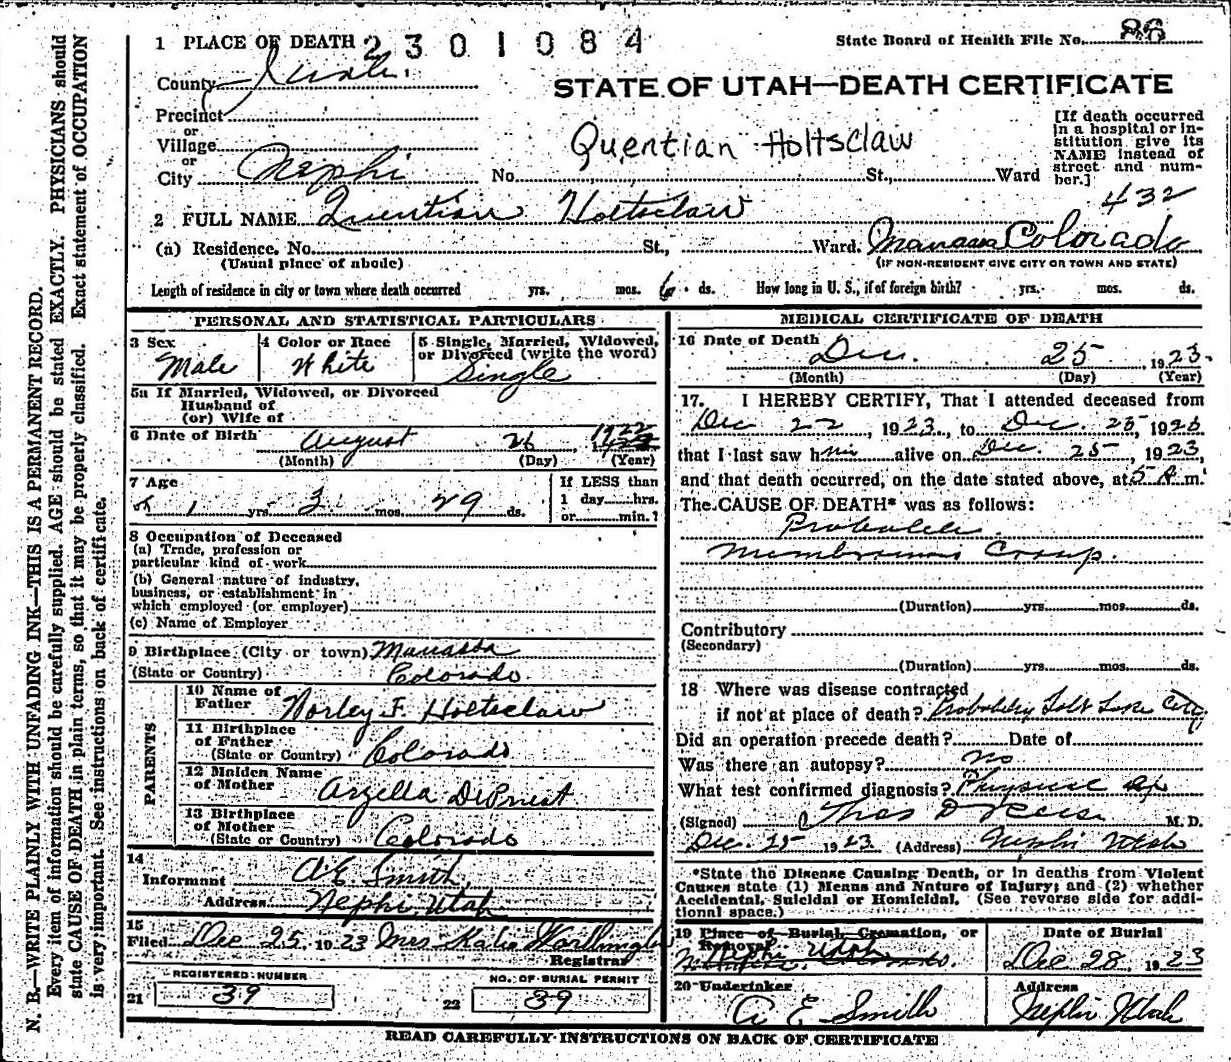 N. B.—WRITE PLAINLY WITH UNFADING INK—THIS IS A PERMANENT RECORD.
Every item of information should be carefully supplied. AGE should be stated EXACTLY. PHYSICIANS should
state CAUSE OF DEATH in plain terms, so that it may be properly classified. Exact statement of OCCUPATION
is very important. See instructions on back of certificate.
1 PLACE OF DEATH 2301084
State Board of Health File No. 86
County Juab.
STATE OF UTAH—DEATH CERTIFICATE
Precinct
or
Village
or
City Nephi No. St., Ward
Quentian Holtsclaw
[If death occurred
in a hospital or in-
stitution give its
NAME instead of
street and num-
ber.]
432
2 FULL NAME Quentian Holtsclaw
(a) Residence. No. St., Ward. Manassa Colorado
(Usual place of abode) (IF NON-RESIDENT GIVE CITY OR TOWN AND STATE)
Length of residence in city or town where death occurred yrs. mos. 6 ds. How long in U. S., if of foreign birth? yrs. mos. ds.
PERSONAL AND STATISTICAL PARTICULARS
3 Sex 4 Color or Race 5 Single, Married, Widowed,
or Divorced (write the word)
Male White Single
5a If Married, Widowed, or Divorced
Husband of
(or) Wife of
6 Date of Birth August 26 1922
(Month) (Day) (Year)
7 Age If LESS than
1 yrs. 3 mos. 29 ds. 1 day hrs.
or min.?
8 Occupation of Deceased
(a) Trade, profession or
particular kind of work
(b) General nature of industry,
business, or establishment in
which employed (or employer)
(c) Name of Employer
9 Birthplace (City or town) Manassa
(State or Country) Colorado
PARENTS
10 Name of
Father Norley F. Holtsclaw
11 Birthplace
of Father
(State or Country) Colorado
12 Maiden Name
of Mother Arzella DePriest
13 Birthplace
of Mother
(State or Country) Colorado
14
Informant A E Smith
Address Nephi, Utah
15
Filed Dec 25 1923 Mrs Katie
Registrar
REGISTERED NUMBER NO. OF BURIAL PERMIT
21 39 22 39
MEDICAL CERTIFICATE OF DEATH
16 Date of Death Dec. 25, 1923.
(Month) (Day) (Year)
17. I HEREBY CERTIFY, That I attended deceased from
Dec 22, 1923, to Dec. 25, 1923
that I last saw him alive on Dec. 25, 1923,
and that death occurred, on the date stated above, at 5 A m.
The CAUSE OF DEATH* was as follows:
Probable
Membranous Croup.
(Duration) yrs. mos. ds.
Contributory
(Secondary)
(Duration) yrs. mos. ds.
18 Where was disease contracted
if not at place of death? Probably Salt Lake City
Did an operation precede death? Date of
Was there an autopsy? no
What test confirmed diagnosis? Physical
(Signed) Thos D Rees M. D.
Dec. 25 1923 (Address) Nephi Utah
*State the Disease Causing Death, or in deaths from Violent
Causes state (1) Means and Nature of Injury; and (2) whether
Accidental, Suicidal or Homicidal. (See reverse side for addi-
tional space.)
19 Place of Burial, Cremation, or
Removal Date of Burial
Nephi Utah Dec 28, 1923
20 Undertaker Address
A E Smith Nephi Utah
READ CAREFULLY INSTRUCTIONS ON BACK OF CERTIFICATE